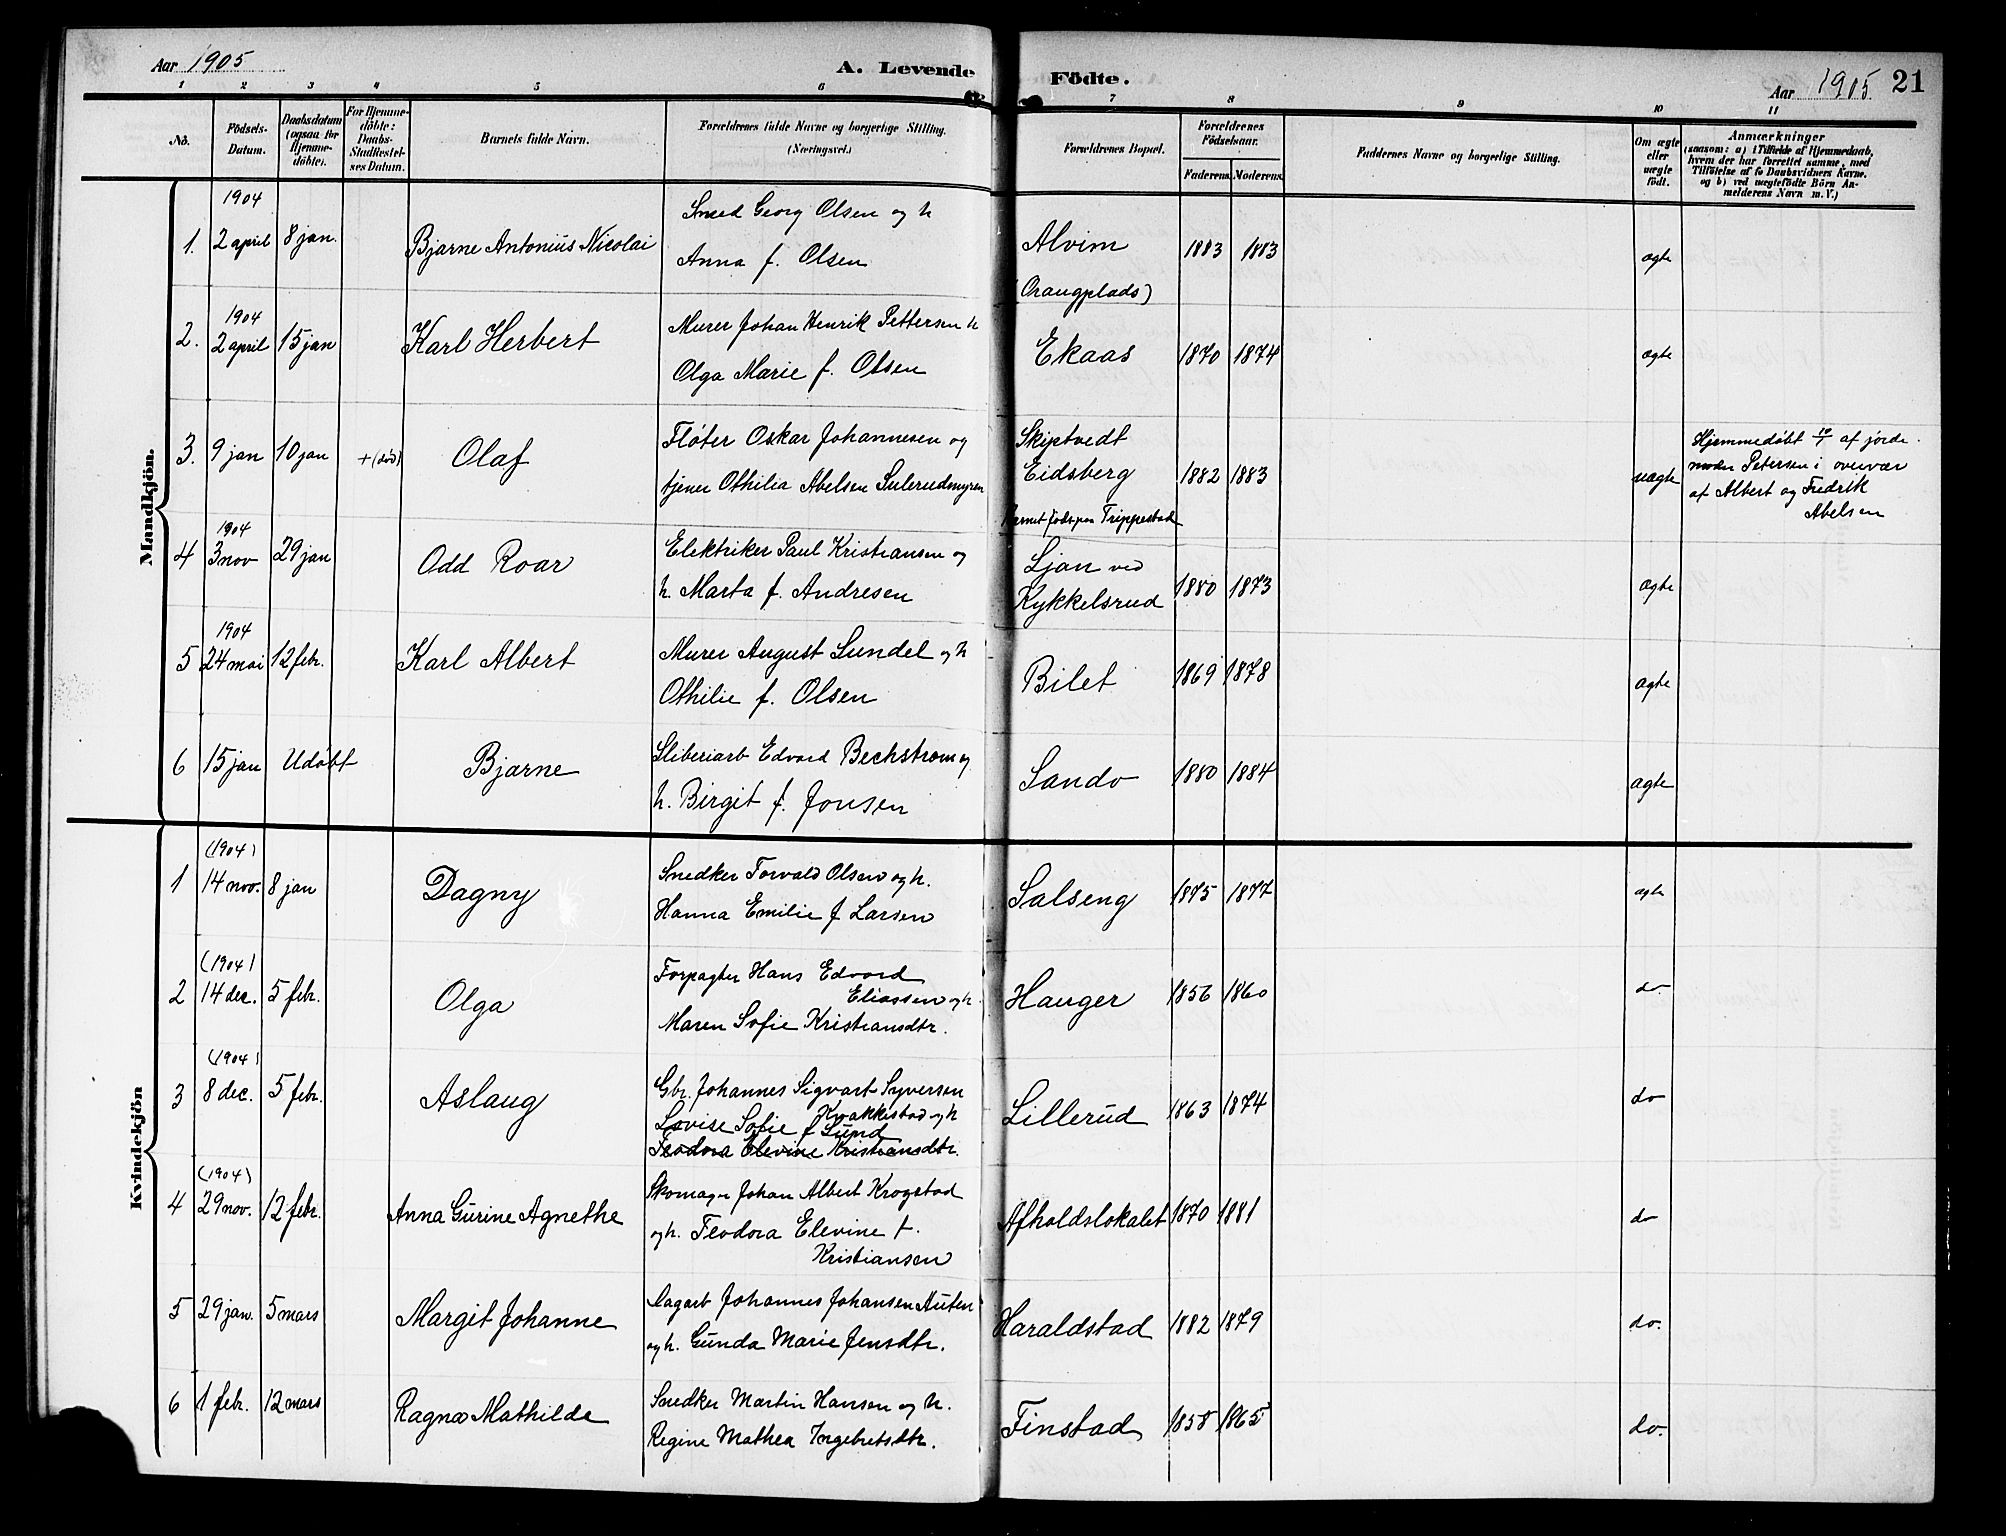 Aar 1905 A. Levende Fødte. Aar 1905 21
1 2 3 4 5 6 7 8 9 10 11
No. Fødsels-Datum. Daabsdatum (ogsaa for Hjemme-døbte). For Hjemme-døbte: Daabs-Stadfæstel-ses Datum. Barnets fulde Navn. Forældrenes fulde Navne og borgerlige Stilling. (Næringsvei.) Forældrenes Bopæl. Forældrenes Fødselsaar. Faderens. Moderens. Faddernes Navne og borgerlige Stilling. Om ægte eller uægte født. Anmærkninger (saasom: a) i Tilfælde af Hjemmedaab, hvem der har forrettet samme, med Tilføielse af to Daabsvidners Navne, og b) ved uægtefødte Børn An-melderens Navn m. V.)
Mandkjön.
1. 1904 2 april 8 jan. Bjarne Antonius Nicolai Smed Georg Olsen og h Anna f. Olsen Alvim 1883 1883 ægte
2. 1904 2 april 15 jan Karl Herbert Murer Johan Henrik Pettersen h Olga Marie f. Olsen (Orangplads) Ekaas 1870 1874 ægte
3. 9 jan 10 jan + (død) Olaf Fløter Oskar Johannesen og tjener Othilia Abelsen Sulerudmyren Skiptvedt Eidsberg Barnet føds. paa Trippestad 1882 1883 uægte Hjemmedøbt 10/1 af jorde-moder Petersen i overvær af Albert og Fredrik Abelsen
4 1904 3 nov 29 jan Odd Roar Elektriker Paul Kristiansen og h. Marta f. Andresen Ljan ved Kykkelsrud 1880 1873 ægte
5 1904 24 mai 12 febr. Karl Albert Murer August Sundel og h Othilie f. Olsen Bilet 1869 1878 ægte
6 15 jan Udøbt Bjarne Sliberiarb Edvard Bechstrøm og h. Birgit f. Jonsen Sando 1880 1884 ægte
Kvindekjön
1 (1904) 14 nov. 8 jan Dagny Snedker Torvald Olsen og h. Hanna Emilie f Larsen Salseng 1875 1877 ægte
2 (1904) 14 dec. 5 febr. Olga Forpagter Hans Edvard Eliassen og h. Maren Sofie Kristiansdtr. Hauger 1856 1860 do
3 (1904) 8 dec. 5 febr. Aslaug Gbr. Johannes Sigvart Syversen Kvakkestad og h Lovise Sofie f Lund Teodora Elevine Kristiansdtr. Lillerud 1863 1874 do
4 (1904) 29 nov. 12 febr. Anna Gurine Agnethe Skomager Johan Albert Krogstad og h. Teodora Elevine f. Kristiansen Afholdslokalet 1870 1881 do
5 29 jan. 5 mars Margit Johanne Dagarb Johannes Johansen Huten og h. Gunda Marie Jensdtr. Haraldstad 1882 1879 do.
6 1 febr. 12 mars Ragna Mathilde Snedker Martin Hansen og h. Regine Mathea Ingebretsdtr. Finstad 1858 1865 do.